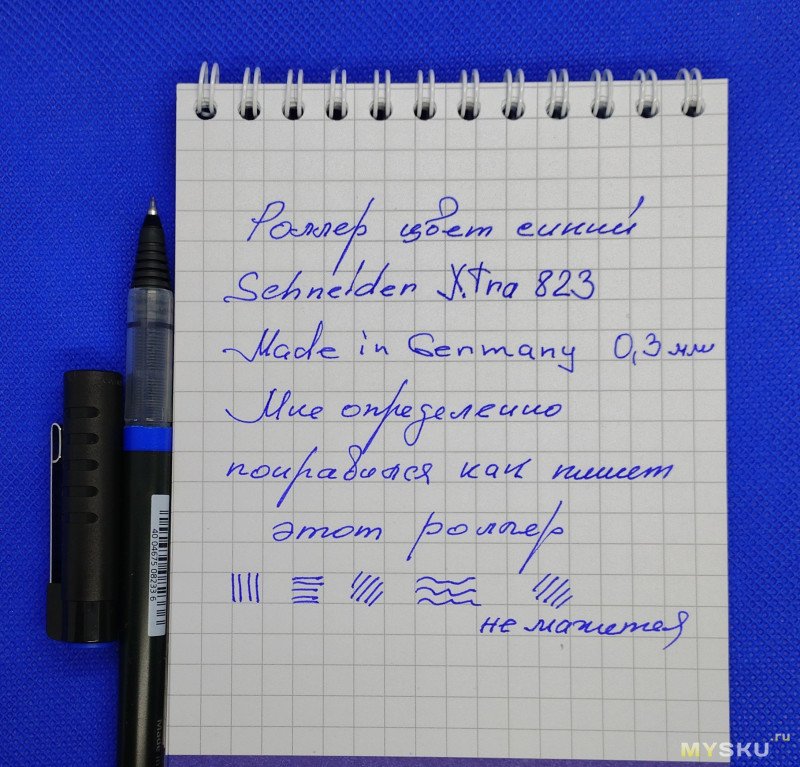 Роллер цвет синий
Schneider Xtra 823
Made in Germany 0,3 мм
Мне определенно
понравился как пишет
этот роллер
не мажется
40 04675 08233 6
Made in
MYSKU.ru